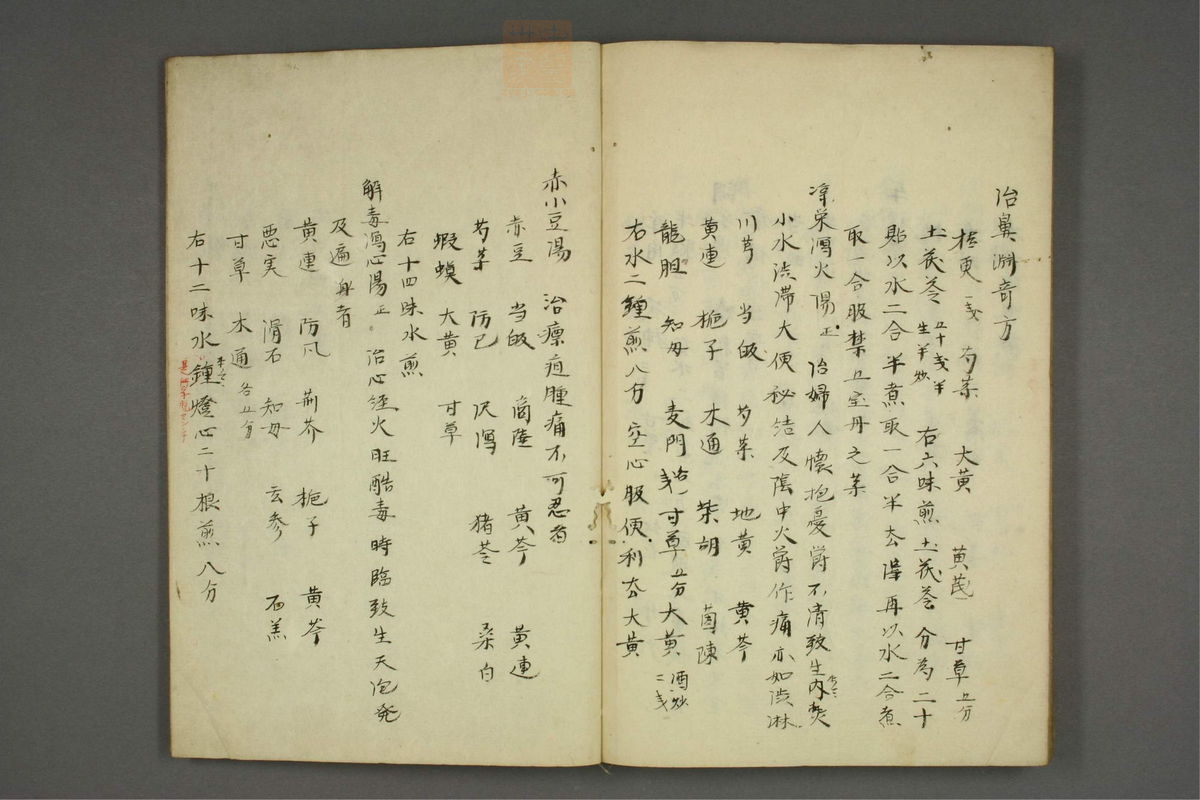 治鼻淵奇方
桔更 一戋 芍薬 大黄 黄芪 甘草 五分
土茯苓 五十戋 生 半 半炒 右六味煎土茯苓分為二十
貼以水二合半煮取一合半去滓再以水二合煮
取一合服禁五宝丹之薬
清栄瀉火湯 正 治婦人懐抱憂欝不清致生内
小水渋滞大便秘結及陰中火欝作痛亦如渋淋
川芎 当皈 芍薬 地黄 黄芩
黄連 梔子 木通 柴胡 茵陳
龍胆 知母 麦門 各一戋 甘草 五分 大黄 酒炒 二戋
右水二鍾煎八分空心服便利去大黄
赤小豆湯 治瘰疽腫痛不可忍者
赤豆 当皈 商陸 黄芩 黄連
芍薬 防已 沢瀉 猪苓 桑白
蝦蟆 大黄 甘草
右十四味水煎
解毒瀉心湯 正 治心経火旺酷毒時臨致生天疱発
及遍身者
黄連 防风 荊芥 梔子 黄芩
悪実 滑石 知母 玄参 石羔
甘草 木通 各五分
右十二味水鍾燈心二十根煎八分